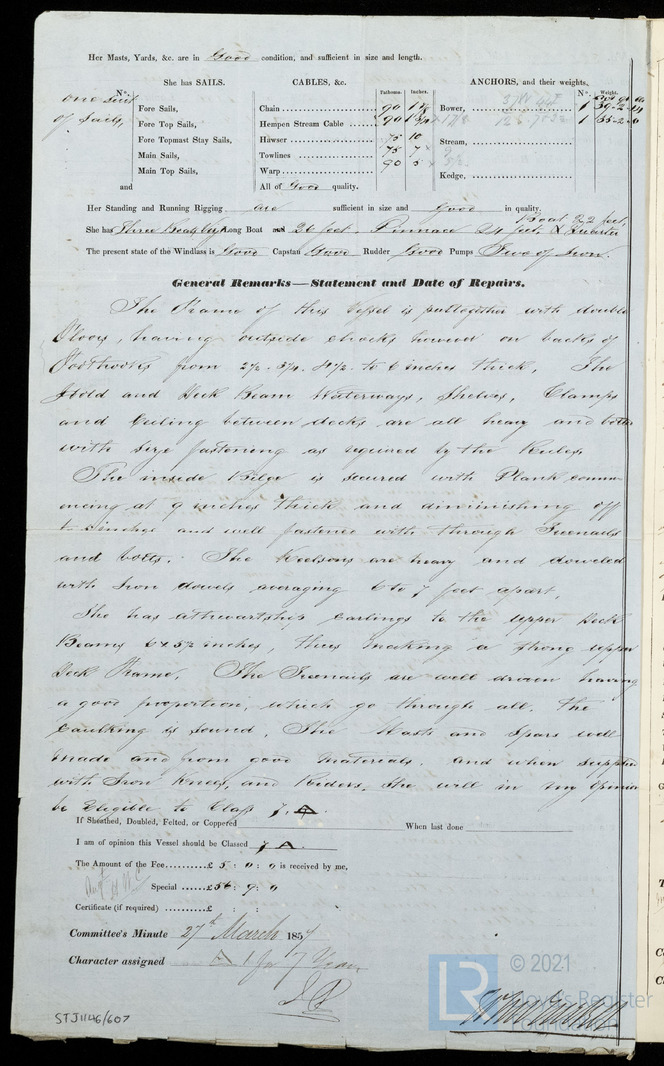 Her Masts, Yards, &c. are in Good condition, and sufficient in size and length.
She has SAILS. CABLES, &c. ANCHORS, and their weights.
Nº. Fathoms. Inches. Nº. Weight.
one Suit
of Sails,
Fore Sails, Chain 90 Bower, 1
Fore Top Sails, Hempen Stream Cable 90 1
Fore Topmast Stay Sails, Hawser 75 10 Stream,
Main Sails, Towlines 75 7
Main Top Sails, Warp 90 5 Kedge,
and All of Good quality.
Her Standing and Running Rigging are sufficient in size and Good in quality.
Boat 22 feet,
She has Three Boats, Long Boat 26 feet. Pinnace 24 feet. &
The present state of the Windlass is Good Capstan Good Rudder Good Pumps Two of Iron.
General Remarks—Statement and Date of Repairs.
The Frame of this Vessel is put together with double
Floors, having outside chocks on backs of
Foothooks from to 6 inches thick, The
Hold and Deck Beam Waterways, Shelves, Clamps
and Ceiling between decks are all heavy and
with size fastening as required by the Rules.
The inside Bilge is secured with Plank comm-
encing at 9 inches thick and diminishing off
to inches and well fastened with through Treenails
and bolts. The Keelsons are heavy and doweled
with Iron dowels averaging 6 to 7 feet apart,
She has athwartship carlings to the upper Deck
Beams 6 x 5½ inches, thus making a strong upper
Deck Frame. The Treenails are well driven having
a good proportion, which go through all, the
Caulking is sound, The Masts and Spars well
made and from good materials. and when supplied
with Iron Knees, and Riders, She will in my Opinion
be Eligible to Class 7. A.
If Sheathed, Doubled, Felted, or Coppered When last done
I am of opinion this Vessel should be Classed 7 A.
The Amount of the Fee £ 5 : 0 : 0 is received by me,
Special £ 56 : 9 : 0
Certificate (if required) £ : :
Committee's Minute 27th March 1857
Character assigned A 1 for 7 Years
LR © 2021
Lloyd's Register
STJ1146/607